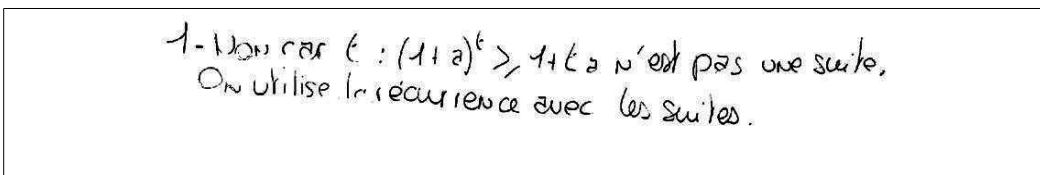 1-Non car t : (1+a)^t ⩾ 1+ta n'est pas une suite.
On utilise la récurrence avec les suites.